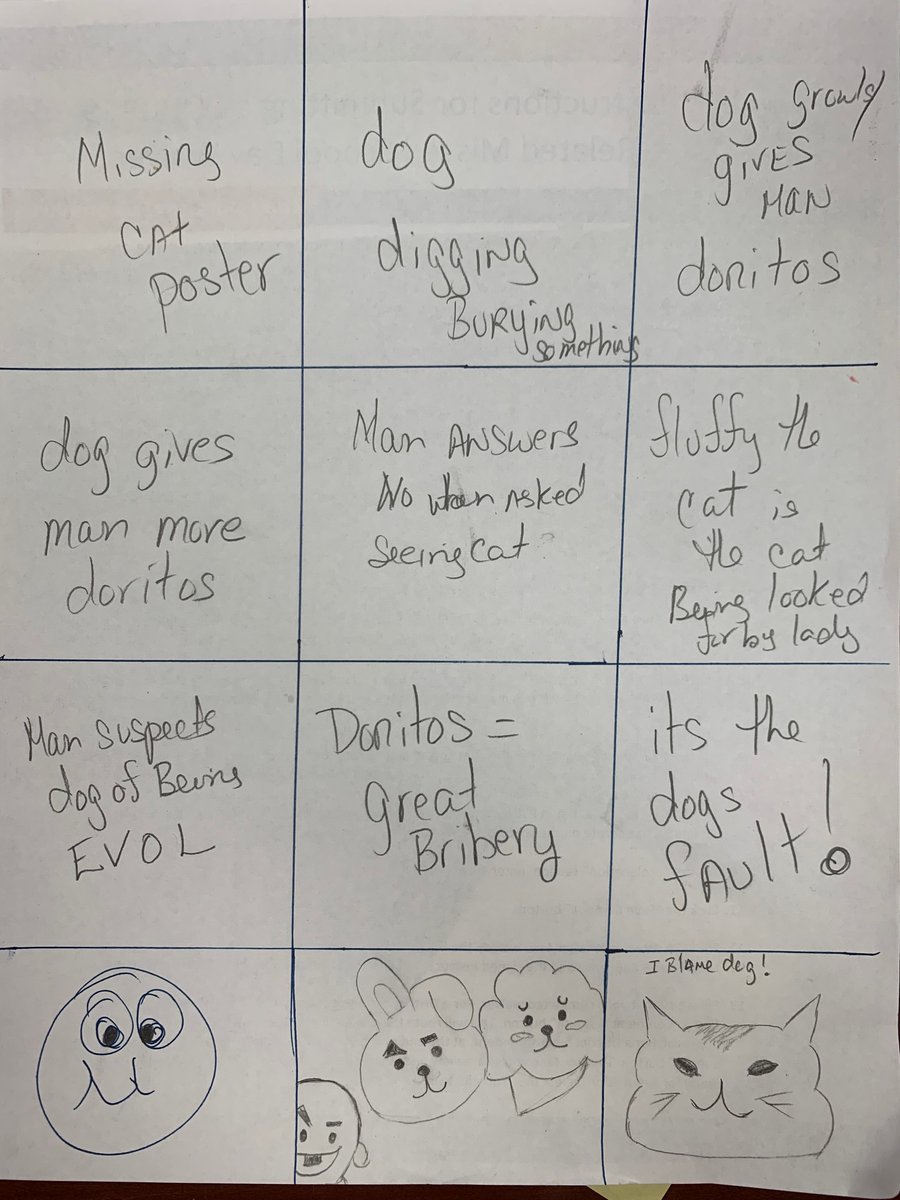 Missing
CAt
poster
dog
digging
BURYiNG
something
dog growls
giVES
MAN
doritos
dog gives
man more
doritos
Man ANSWERS
No when Asked
Seeing Cat
fluffy the
cat is
the cat
Being looked
for by lady
Man suspects
dog of Being
EVOL
Doritos =
great
Bribery
its the
dogs
fAult!
I BlAME dog!